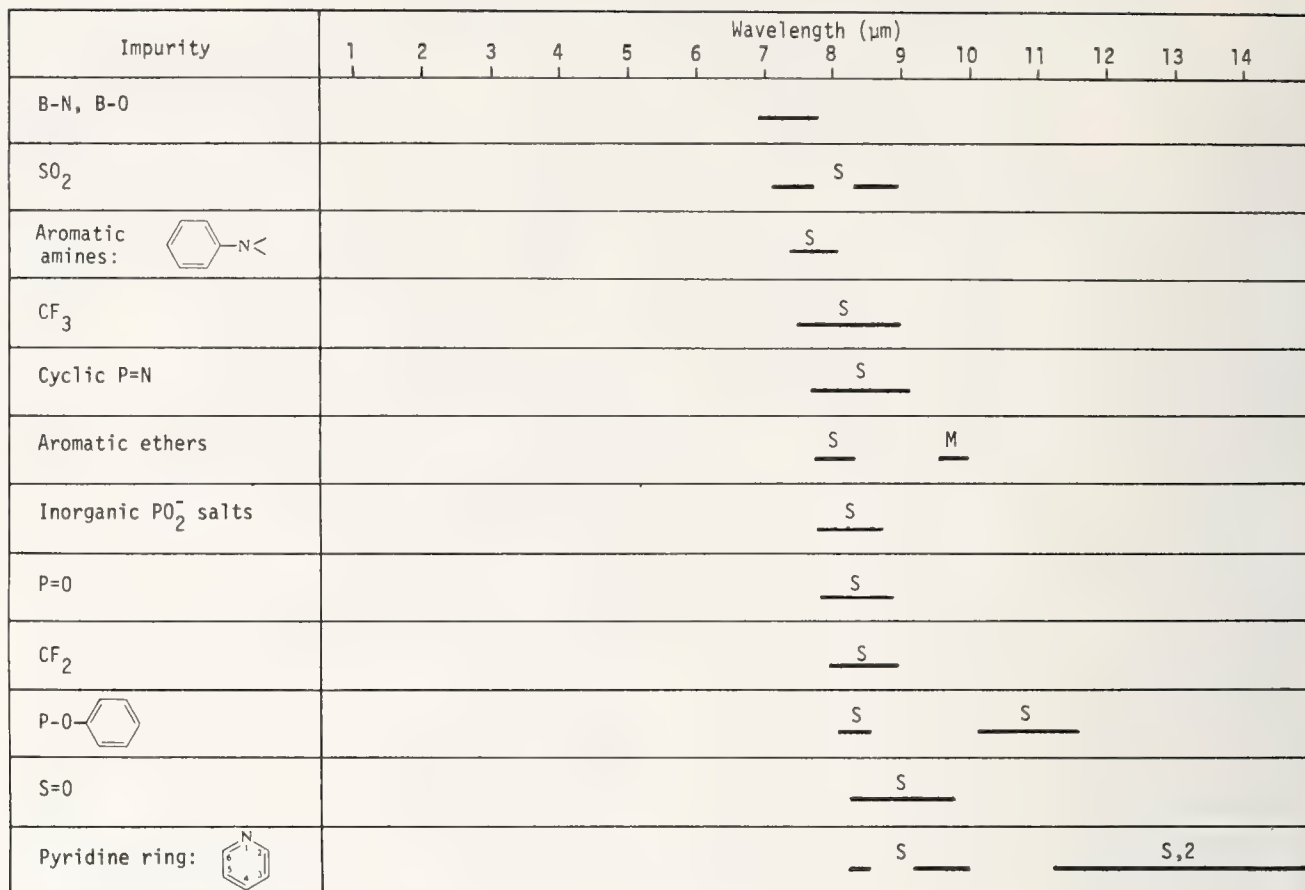 Impurity
Wavelength (µm)
1 2 3 4 5 6 7 8 9 10 11 12 13 14
B-N, B-O
SO2
S
Aromatic
amines:
N
S
CF3
S
Cyclic P=N
S
Aromatic ethers
S M
Inorganic PO2- salts
S
P=O
S
CF2
S
P-O
S S
S=O
S
Pyridine ring:
N
1
6 2
5 3
4
S S,2